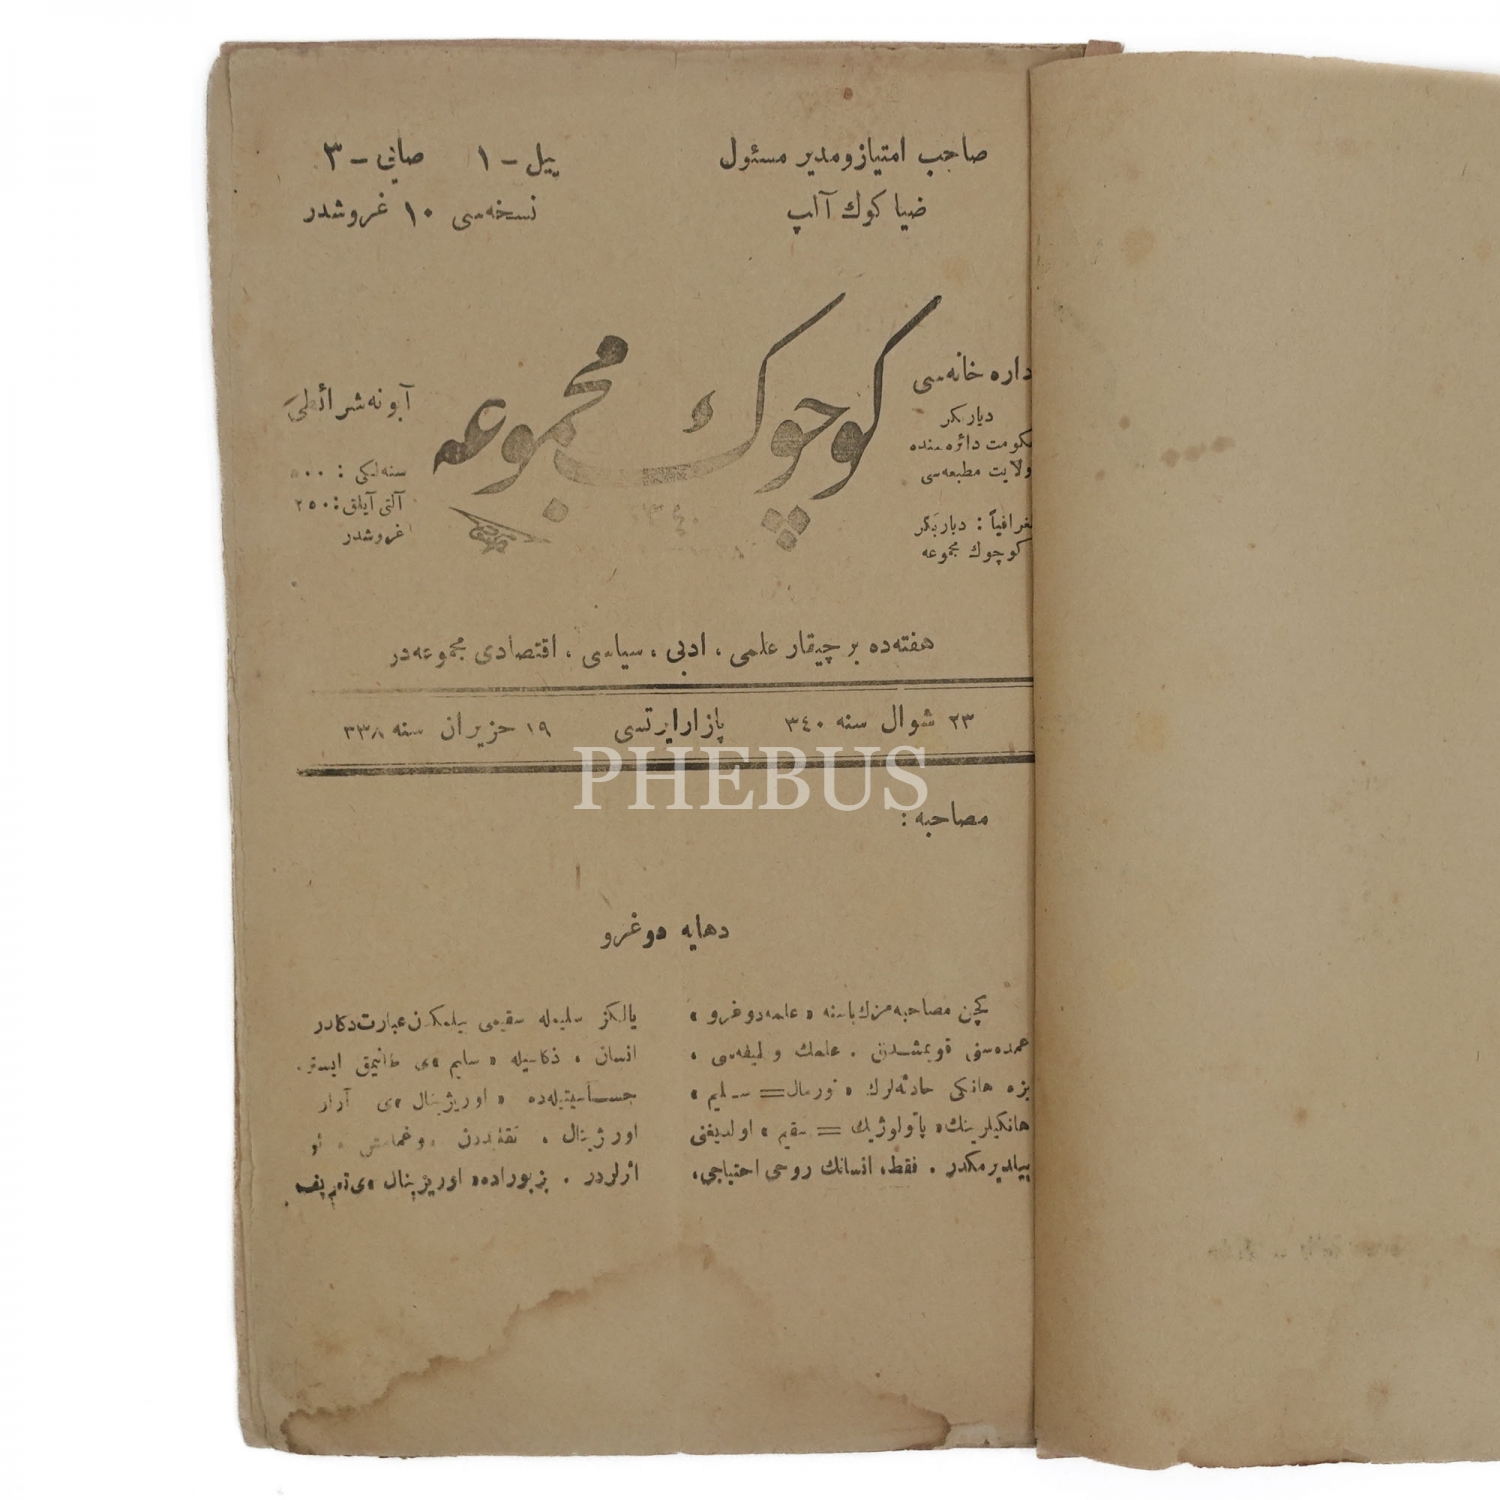 صاحب امتیاز و مدیر مسئول
ضیا کوك آلپ
ییل - ١ صایی - ٣
نسخه‌سی ١٠ غروشدر
کوچوك مجموعه
داره خانه‌سی
دیاربکر
حکومت دائره‌سنده
ولایت مطبعه‌سی
تلغرافیاً : دیاربکر
کوچوك مجموعه
آبونه شرائطی
سنه‌لکی : ٥٠٠
آلتی آیلق : ٢٥٠
غروشدر
هفته‌ده بر چیقار علمی ، ادبی ، سیاسی ، اقتصادی مجموعه‌در
٢٣ شوال سنه ٣٤٠ پازار ایرتسی ١٩ حزیران سنه ٣٣٨
PHEBUS
مصاحبه :
دهایه دوغرو
کچن مصاحبه‌مزك باشنه « علمه دوغرو »
عمده‌سنی قویمشدق . علمك وظیفه‌سی ،
بزه هانکی حادثه‌لرك « نورمال = سلیم »
هانکیلرینك « پاتولوژیك = سقیم » اولدیغنی
بیلدیرمکدر . فقط، انسانك روحی احتیاجی،
یالکز سلیمله سقیمی بیلمکدن عبارت دکلدر
انسان ، ذکاسیله « سلیم »ی طانیمق ایستر.
حساسیتیله‌ده « اوریژینال »ی آرار
اورژینال ، تقلیددن دوغمامش
اثرلردر . بز بوراده « اوریژینال »ی